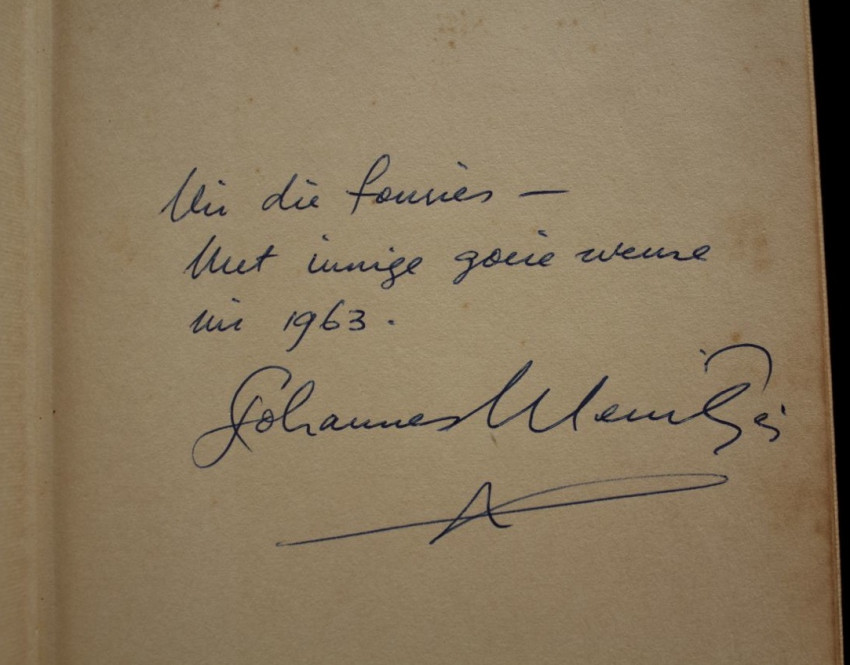 Vir die Fouries —
Met innige goeie wense
vir 1963.
Johannes Meintjes